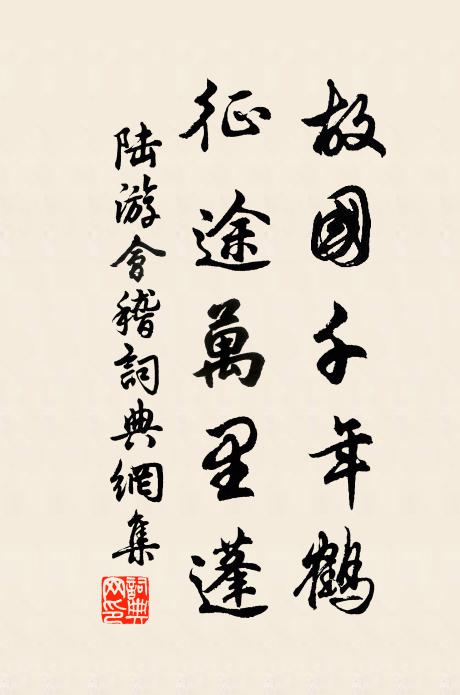 故國千年鶴
征途萬里蓬
陸游會稽詞典網集
詞典网印